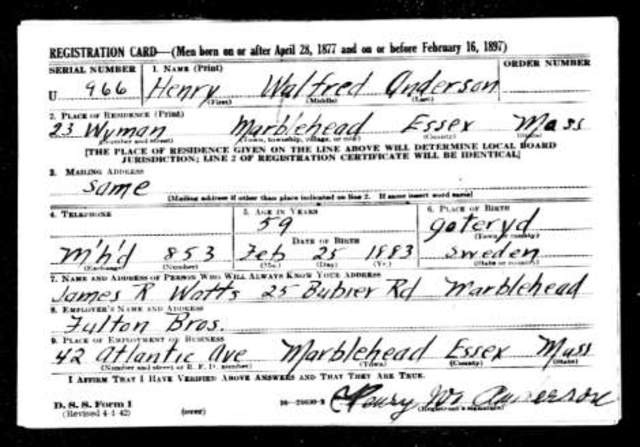 REGISTRATION CARD—(Men born on or after April 28, 1877 and on or before February 16, 1897)
SERIAL NUMBER 1. NAME (Print) ORDER NUMBER
U 966 Henry Walfred Anderson
(First) (Middle) (Last)
2. PLACE OF RESIDENCE (Print)
23 Wyman Marblehead Essex Mass
(Number and street) (Town, township, village, or city) (County) (State)
[THE PLACE OF RESIDENCE GIVEN ON THE LINE ABOVE WILL DETERMINE LOCAL BOARD
JURISDICTION; LINE 2 OF REGISTRATION CERTIFICATE WILL BE IDENTICAL]
3. MAILING ADDRESS
same
[Mailing address if other than place indicated on line 2. If same insert word same]
4. TELEPHONE 5. AGE IN YEARS 6. PLACE OF BIRTH
59 goteryd
DATE OF BIRTH (Town or county)
M'h'd 853 Feb 25 1883 Sweden
(Exchange) (Number) (Mo.) (Day) (Yr.) (State or country)
7. NAME AND ADDRESS OF PERSON WHO WILL ALWAYS KNOW YOUR ADDRESS
James R Watts 25 Bubier Rd Marblehead
8. EMPLOYER'S NAME AND ADDRESS
Fulton Bros.
9. PLACE OF EMPLOYMENT OR BUSINESS
42 Atlantic Ave Marblehead Essex Mass
(Number and street or R. F. D. number) (Town) (County) (State)
I AFFIRM THAT I HAVE VERIFIED ABOVE ANSWERS AND THAT THEY ARE TRUE.
D. S. S. Form 1
(Revised 4-1-42) (over) Henry W. Anderson
(Registrant's signature)